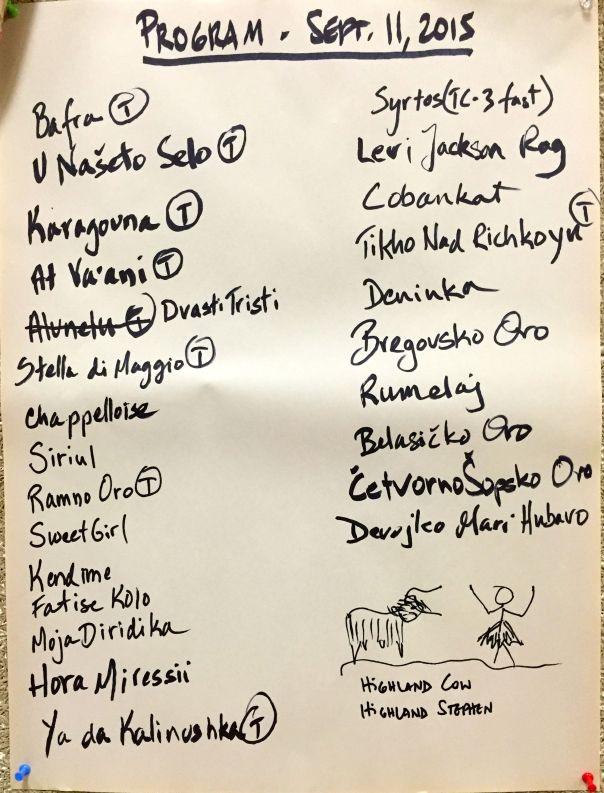 PROGRAM - SEPT. 11, 2015
Bafra Ⓣ
U Našeto Selo Ⓣ
Karagouna Ⓣ
At Va'ani Ⓣ
Alunelu Ⓣ Drasti Tristi
Stella di Maggio Ⓣ
Chappelloise
Siriul
Ramno Oro Ⓣ
Sweet Girl
Kendime
Fatise Kolo
Moja Diridika
Hora Miresii
Ya da Kalinushka Ⓣ
Syrtos (TC-3 fast)
Levi Jackson Rag
Cobankat
Tikho Nad Richkoyu Ⓣ
Deninka
Bregovsko Oro
Rumelaj
Belasičko Oro
Četvorno Šopsko Oro
Devojko Mari Hubavo
HIGHLAND COW
HIGHLAND STEPHEN